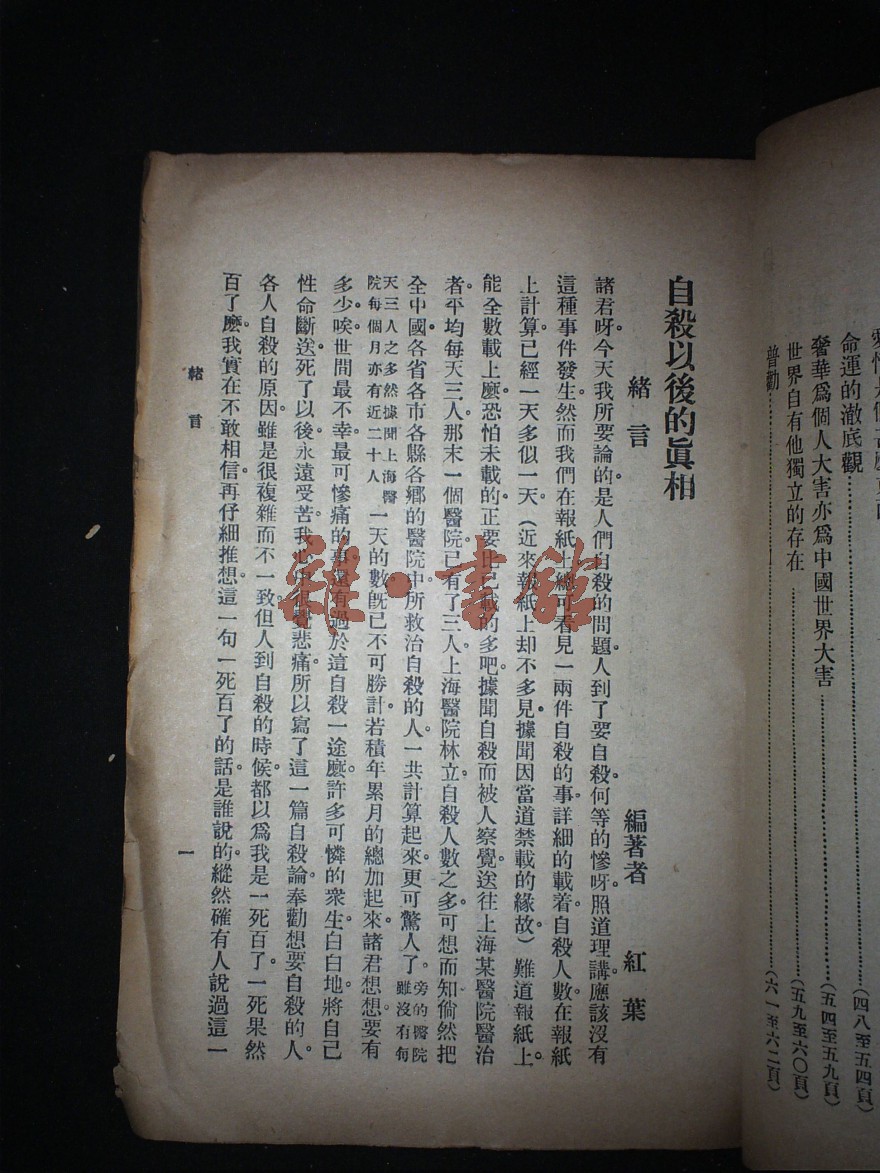 愛情是個
命運的澈底觀……………………(四八至五四頁)
奢華爲個人大害亦爲中國世界大害……………………(五四至五九頁)
世界自有他獨立的存在……………………(五九至六〇頁)
普勸……………………(六一至六二頁)
自殺以後的眞相
緒言
編著者 紅葉
諸君呀。今天我所要論的。是人們自殺的問題。人到了要自殺。何等的慘呀。照道理講。應該沒有
這種事件發生。然而我們在報紙上。總可看見一兩件自殺的事。詳細的載着。自殺人數。在報紙
上計算。已經一天多似一天。(近來報紙上却不多見。據聞因當道禁載的緣故)難道報紙上。
能全數載上麽。恐怕未載的。正要比已載的多吧。據聞自殺而被人察覺。送往上海某醫院醫治
者。平均每天三人。那末一個醫院。已有了三人。上海醫院林立。自殺人數之多。可想而知。倘然把
全中國。各省各市各縣各鄉的醫院中。所救治自殺的人。一共計算起來。更可驚人了。旁的醫院雖沒有每
天三人之多然據聞上海醫院每個月亦有近二十人一天的數。旣已不可勝計。若積年累月的總加起來。諸君想想。要有
多少。唉。世間最不幸。最可慘痛的事。還有過於這自殺一途麽。許多可憐的衆生。白白地。將自己
性命斷送。死了以後。永遠受苦。我心中很覺悲痛。所以寫了這一篇自殺論。奉勸想要自殺的人。
各人自殺的原因。雖是很複雜而不一致。但人到自殺的時候。都以爲我是一死百了。一死果然
百了麽。我實在不敢相信。再仔細推想。這一句一死百了的話。是誰說的。縱然確有人說過這一
緒言
一
雜·書館